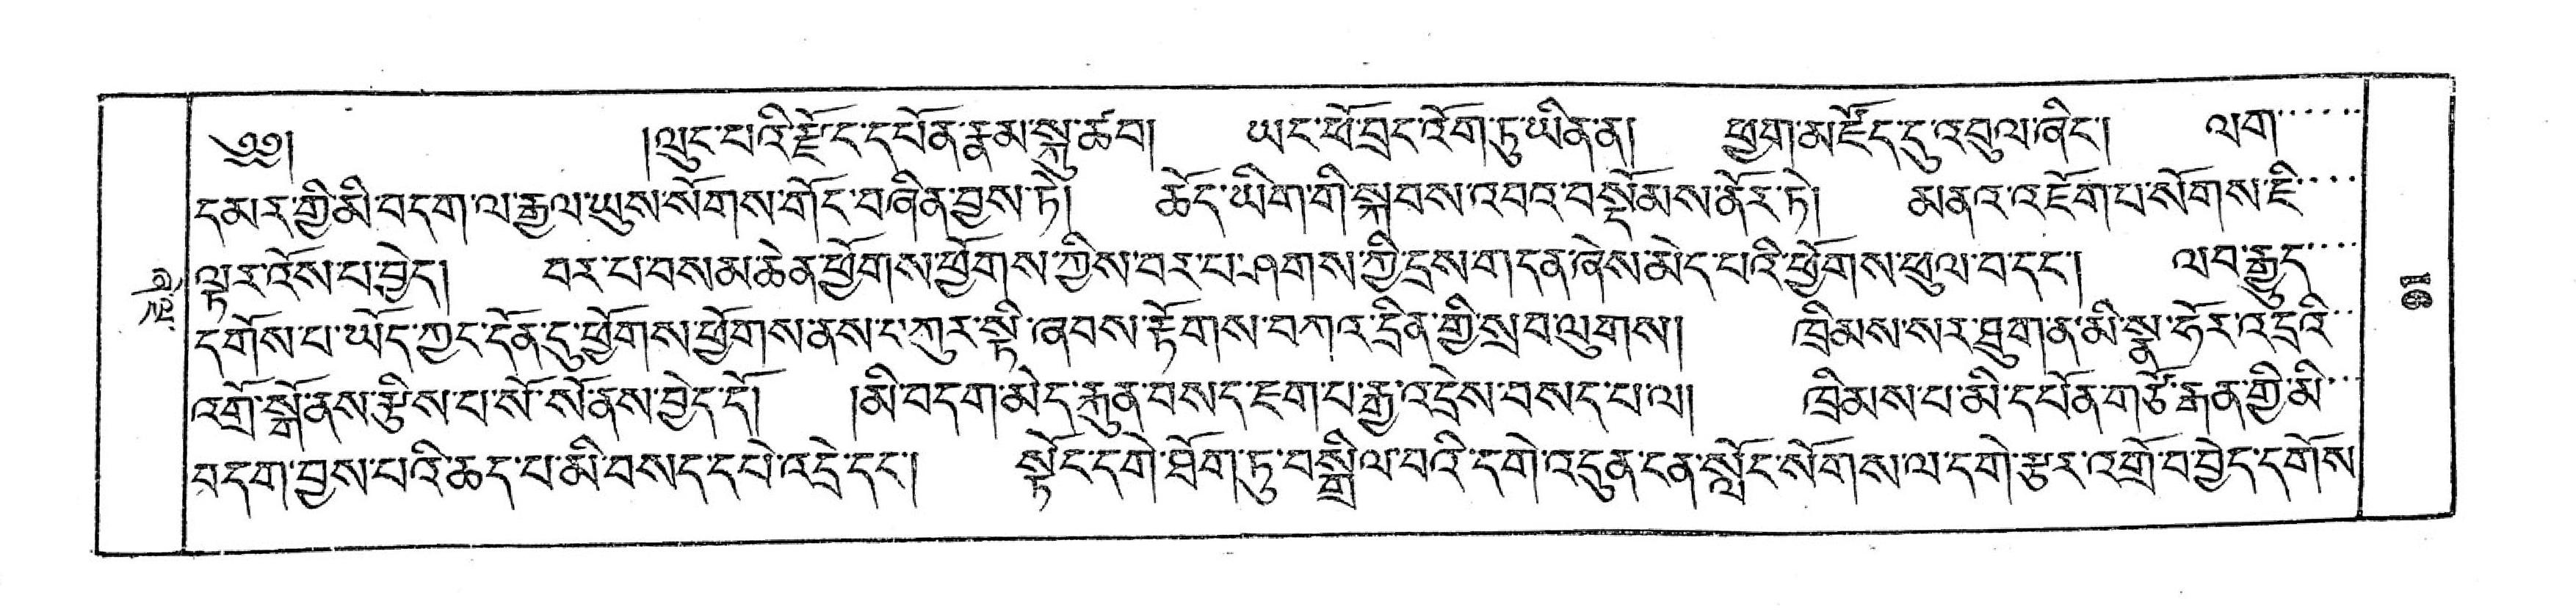 ༄༅། །ལུང་པའི་རྫོང་དཔོན་རྣམ་སྐུ་ཚབ། ཡང་ཕོ་བྲང་འོག་ཏུ་ཡིན་ན། ཕྱག་མཛོད་དུ་འབུལ་ཞིང་། ལག་
དམར་གྱི་མི་བདག་ལ་རྒྱལ་ཡུས་སོགས་གོང་བཞིན་བྱས་ཏེ། ཆོད་ཡིག་གི་སྐབས་འབབ་བསྡོམས་ནོར་ཏེ། མནའ་འཇོག་པ་སོགས་ཇི་
ལྟར་འོས་པ་བྱེད། བར་པ་བས་མ་ཆེན་ཕྱོགས་ཕྱོགས་ཀྱིས་བར་པ་ཤགས་ཀྱི་དྲས་གདན་ཞེས་མེད་པའི་ཕྱོགས་ཕུལ་བ་དང་། ལབ་རྒྱུད་
དགོས་པ་ཡོད་ཀྱང་དོན་དུ་ཕྱོགས་ཕྱོགས་ནས་ང་ཀུར་སྟི་ཞབས་རྟོགས་བཀའ་དྲིན་གྱི་སྲབ་ལུགས། ཁྲིམས་སར་ཐུག་ན་མི་སྣ་ཧོར་འདྲའི་
འགྲོ་སྒོ་ནས་རྩིས་པ་སོ་སོ་ནས་བྱེད་དོ། །མི་བདག་མེད་རྐུན་བསད་ཇག་པ་རྒྱ་འདྲེས་བསད་པ་ལ། ཁྲིམས་པ་མི་དཔོན་གཙོ་རྒན་གྱི་མི་
བདག་བྱས་པའི་ཆད་པ་མི་བསད་དཔེ་འདྲེ་དང་། སྟོང་དགེ་ཐོག་ཏུ་བསྒྲིལ་བའི་དགེ་འདུན་ངན་སློང་སོགས་ལ་དགེ་རྩར་འགྲོ་བ་བྱེད་དགོས་